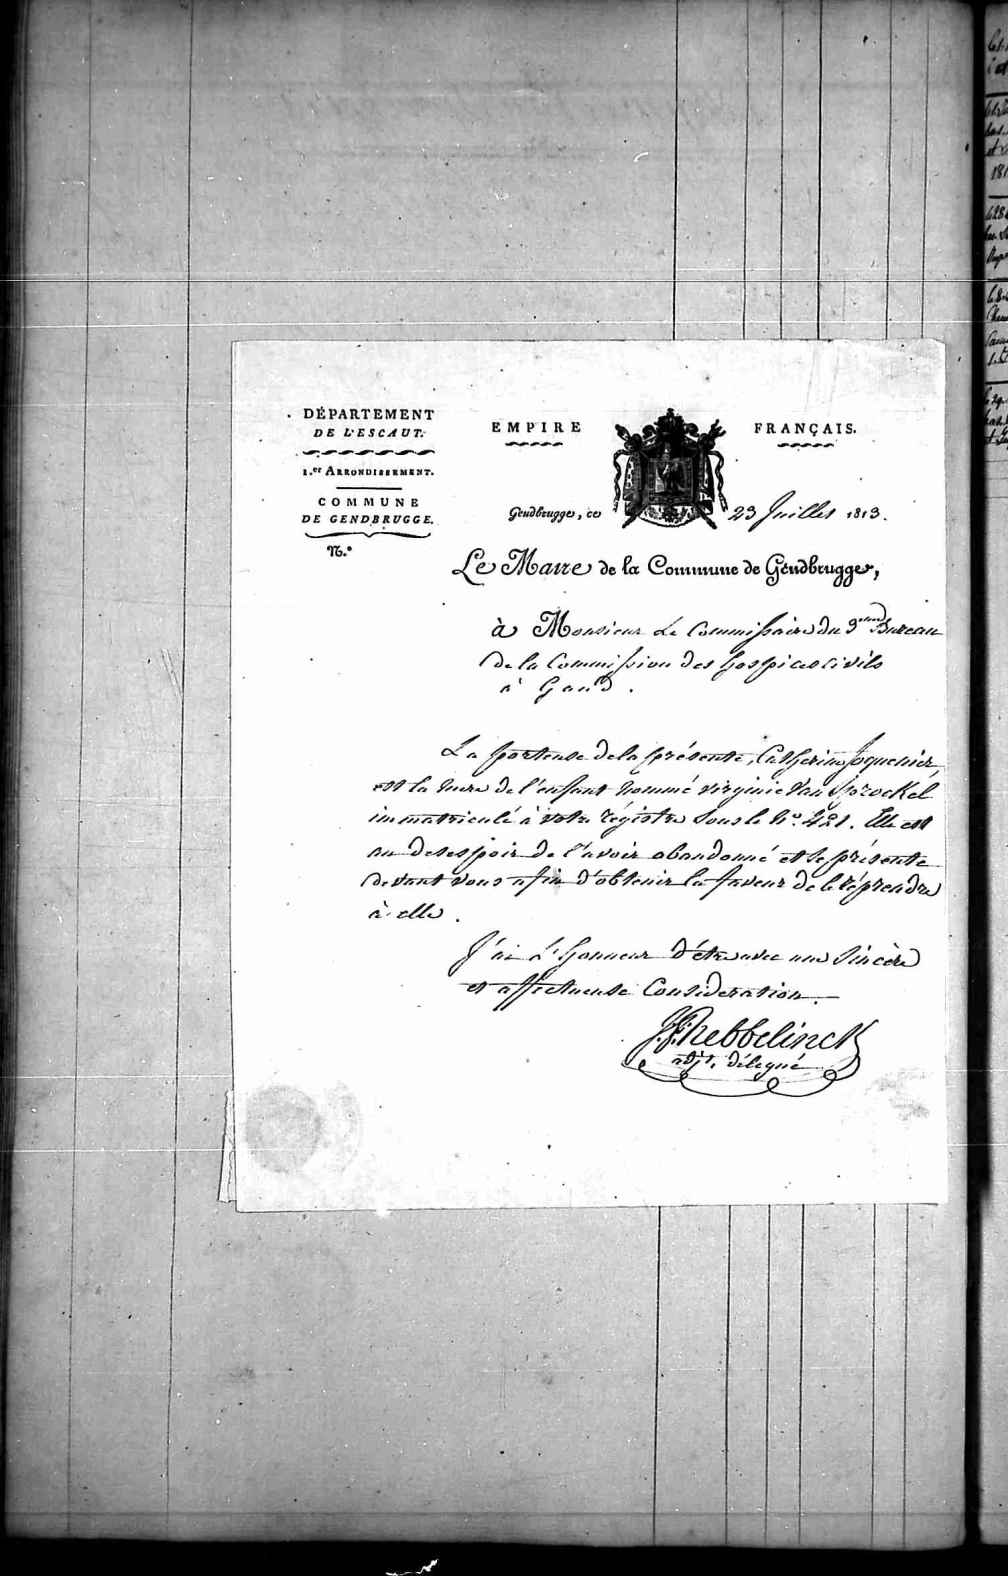 DÉPARTEMENT
DE L'ESCAUT.
1.er ARRONDISSEMENT.
COMMUNE
DE GENDBRUGGE.
N.°
EMPIRE FRANÇAIS.
Gendbrugge, ce 23 Juillet 1813.
Le Maire de la Commune de Gendbrugge,
à Monsieur Le Commissaire du 3eme Bureau
De la Commission des hospices civils
à Gand.
La porteuse de la présente, Catherine
est la mere de l'enfant nommé virginie Van Sprockel
immatriculé à votre régistre sous le N.° 421. Elle est
au desespoir de l'avoir abandonné et se présente
devant vous afin d'obtenir la faveur de le réprendre
à elle.
J'ai L'honneur d'être avec une sincère
et affectueuse Consideration.
hebbelinck
adjt. délegué